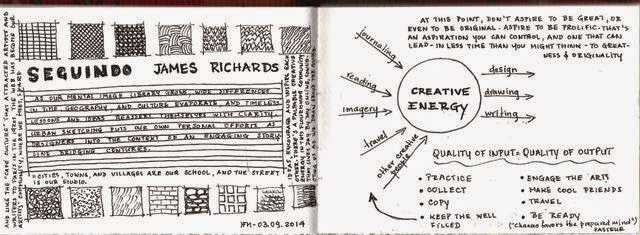 AND LIKE THE "CAFE CULTURE" THAT ATTRACTED ARTISTS AND
SEGUINDO JAMES RICHARDS
AS OUR MENTAL IMAGE LIBRARY GROWS, WIDE DIFFERENCES
IN THE GEOGRAPHY, AND CULTURE EVAPORATE, AND TIMELESS
LESSONS AND IDEAS REASSERT THEMSELVES WITH CLARITY.
URBAN SKETCHING PUTS OUR OWN PERSONAL EFFORTS AS
DESIGNERS INTO THE CONTEXT OF AN ENGAGING STORY
LINE BRIDGING CENTURIES.
CITIES, TOWNS, AND VILLAGES ARE OUR SCHOOL, AND THE STREET
IS OUR STUDIO.
IDEAS, ENCOURAGE AND INSPIRE EACH
OTHER. THERE'S A PALPABLE CREATIVE
03.09.2014
AT THIS POINT, DON'T ASPIRE TO BE GREAT, OR
EVEN TO BE ORIGINAL. ASPIRE TO BE PROLIFIC. THAT'S
AN ASPIRATION YOU CAN CONTROL, AND ONE THAT CAN
LEAD - IN LESS TIME THAN YOU MIGHT THINK - TO GREAT-
NESS & ORIGINALITY
journaling
reading
imagery
travel
other creative
people
CREATIVE
ENERGY
design
drawing
writing
QUALITY OF INPUT = QUALITY OF OUTPUT
• PRACTICE
• COLLECT
• COPY
• KEEP THE WELL
FILLED
• ENGAGE THE ARTS
• MAKE COOL FRIENDS
• TRAVEL
• BE READY
("Chance favors the prepared mind")
PASTEUR